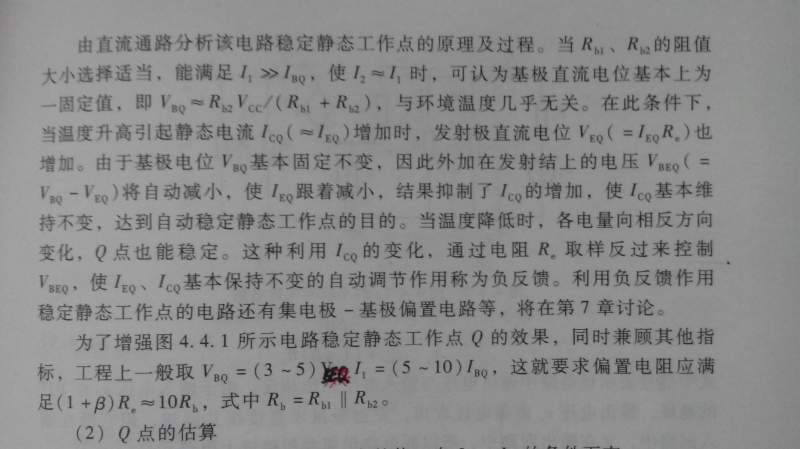 由直流通路分析该电路稳定静态工作点的原理及过程。当 Rb1、Rb2的阻值
大小选择适当，能满足 I1 ≫ IBQ，使 I2 ≈ I1 时，可认为基极直流电位基本上为
一固定值，即 VBQ ≈ Rb2 VCC/(Rb1 + Rb2)，与环境温度几乎无关。在此条件下，
当温度升高引起静态电流 ICQ(≈IEQ)增加时，发射极直流电位 VEQ(=IEQRe)也
增加。由于基极电位 VBQ基本固定不变，因此外加在发射结上的电压 VBEQ(=
VBQ - VEQ)将自动减小，使 IEQ跟着减小，结果抑制了 ICQ的增加，使 ICQ基本维
持不变，达到自动稳定静态工作点的目的。当温度降低时，各电量向相反方向
变化，Q 点也能稳定。这种利用 ICQ 的变化，通过电阻 Re 取样反过来控制
VBEQ，使 IEQ、ICQ基本保持不变的自动调节作用称为负反馈。利用负反馈作用
稳定静态工作点的电路还有集电极 - 基极偏置电路等，将在第 7 章讨论。
为了增强图 4.4.1 所示电路稳定静态工作点 Q 的效果，同时兼顾其他指
标，工程上一般取 VBQ = (3 ~ 5) I1 = (5 ~ 10) IBQ，这就要求偏置电阻应满
足(1 + β)Re ≈ 10Rb，式中 Rb = Rb1 ∥ Rb2。
(2) Q 点的估算